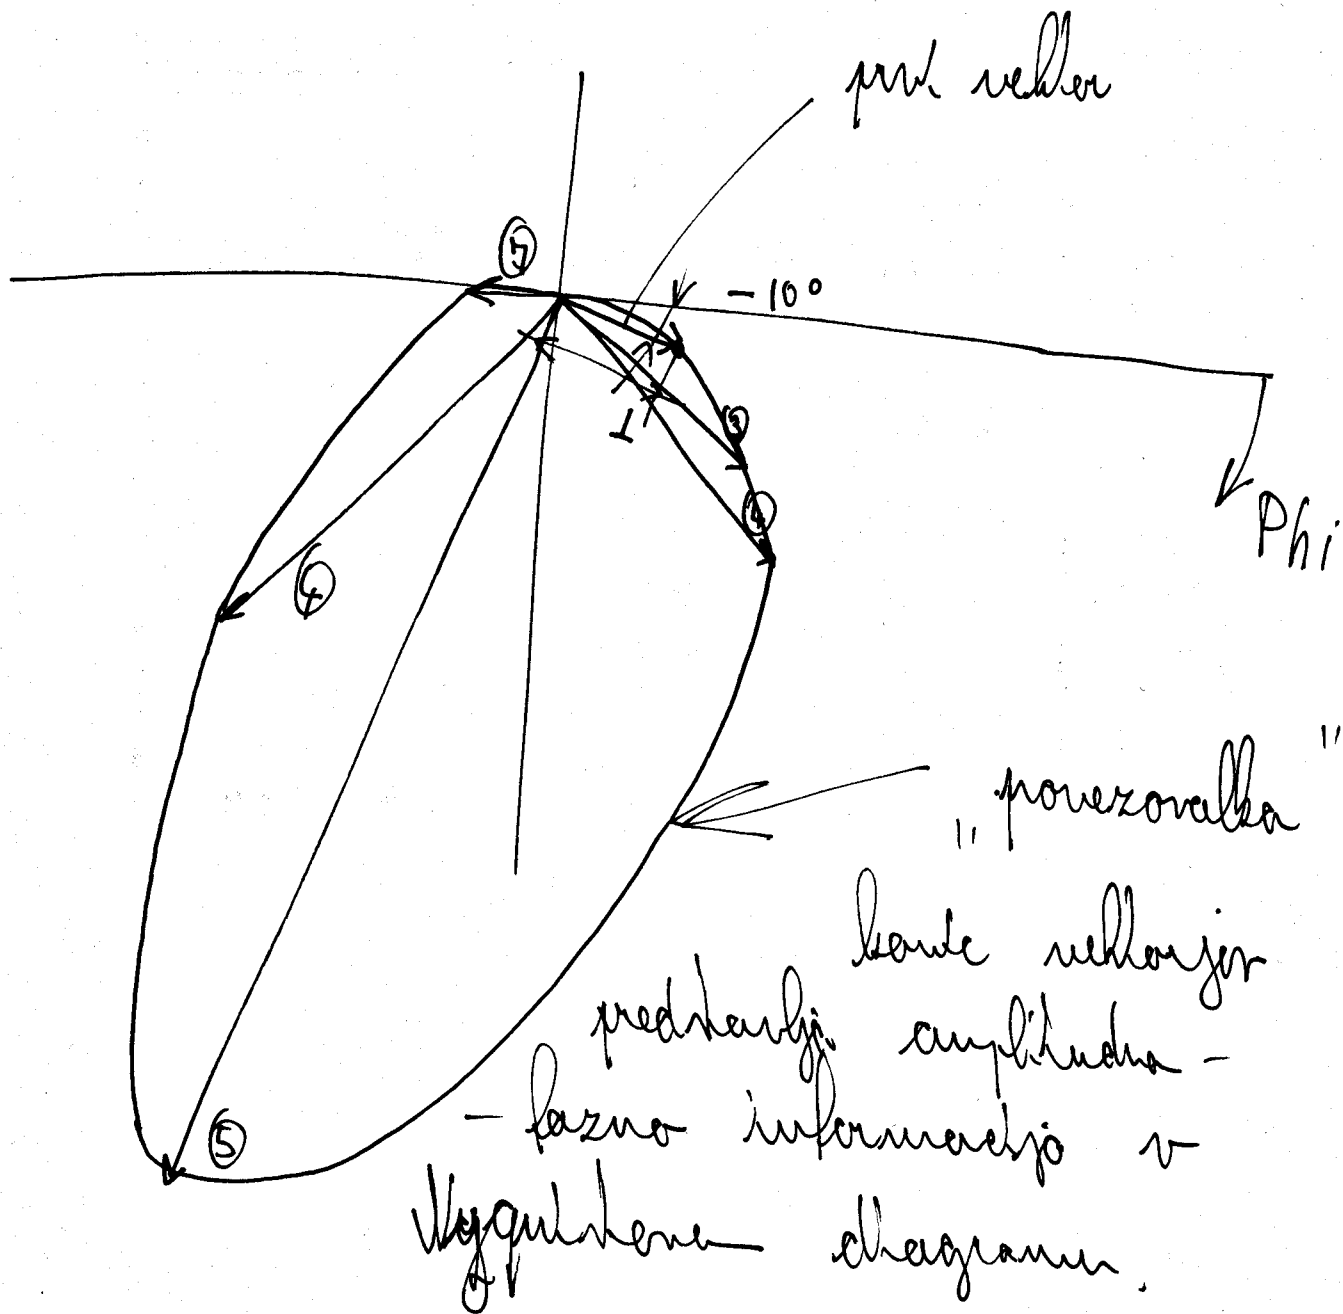 prvi vektor
7
-10°
1
3
4
Phi
6
"povezovalka"
5
konic vektorjev
predstavlja amplitudno -
- fazno informacijo v
Nyquistovem diagramu.